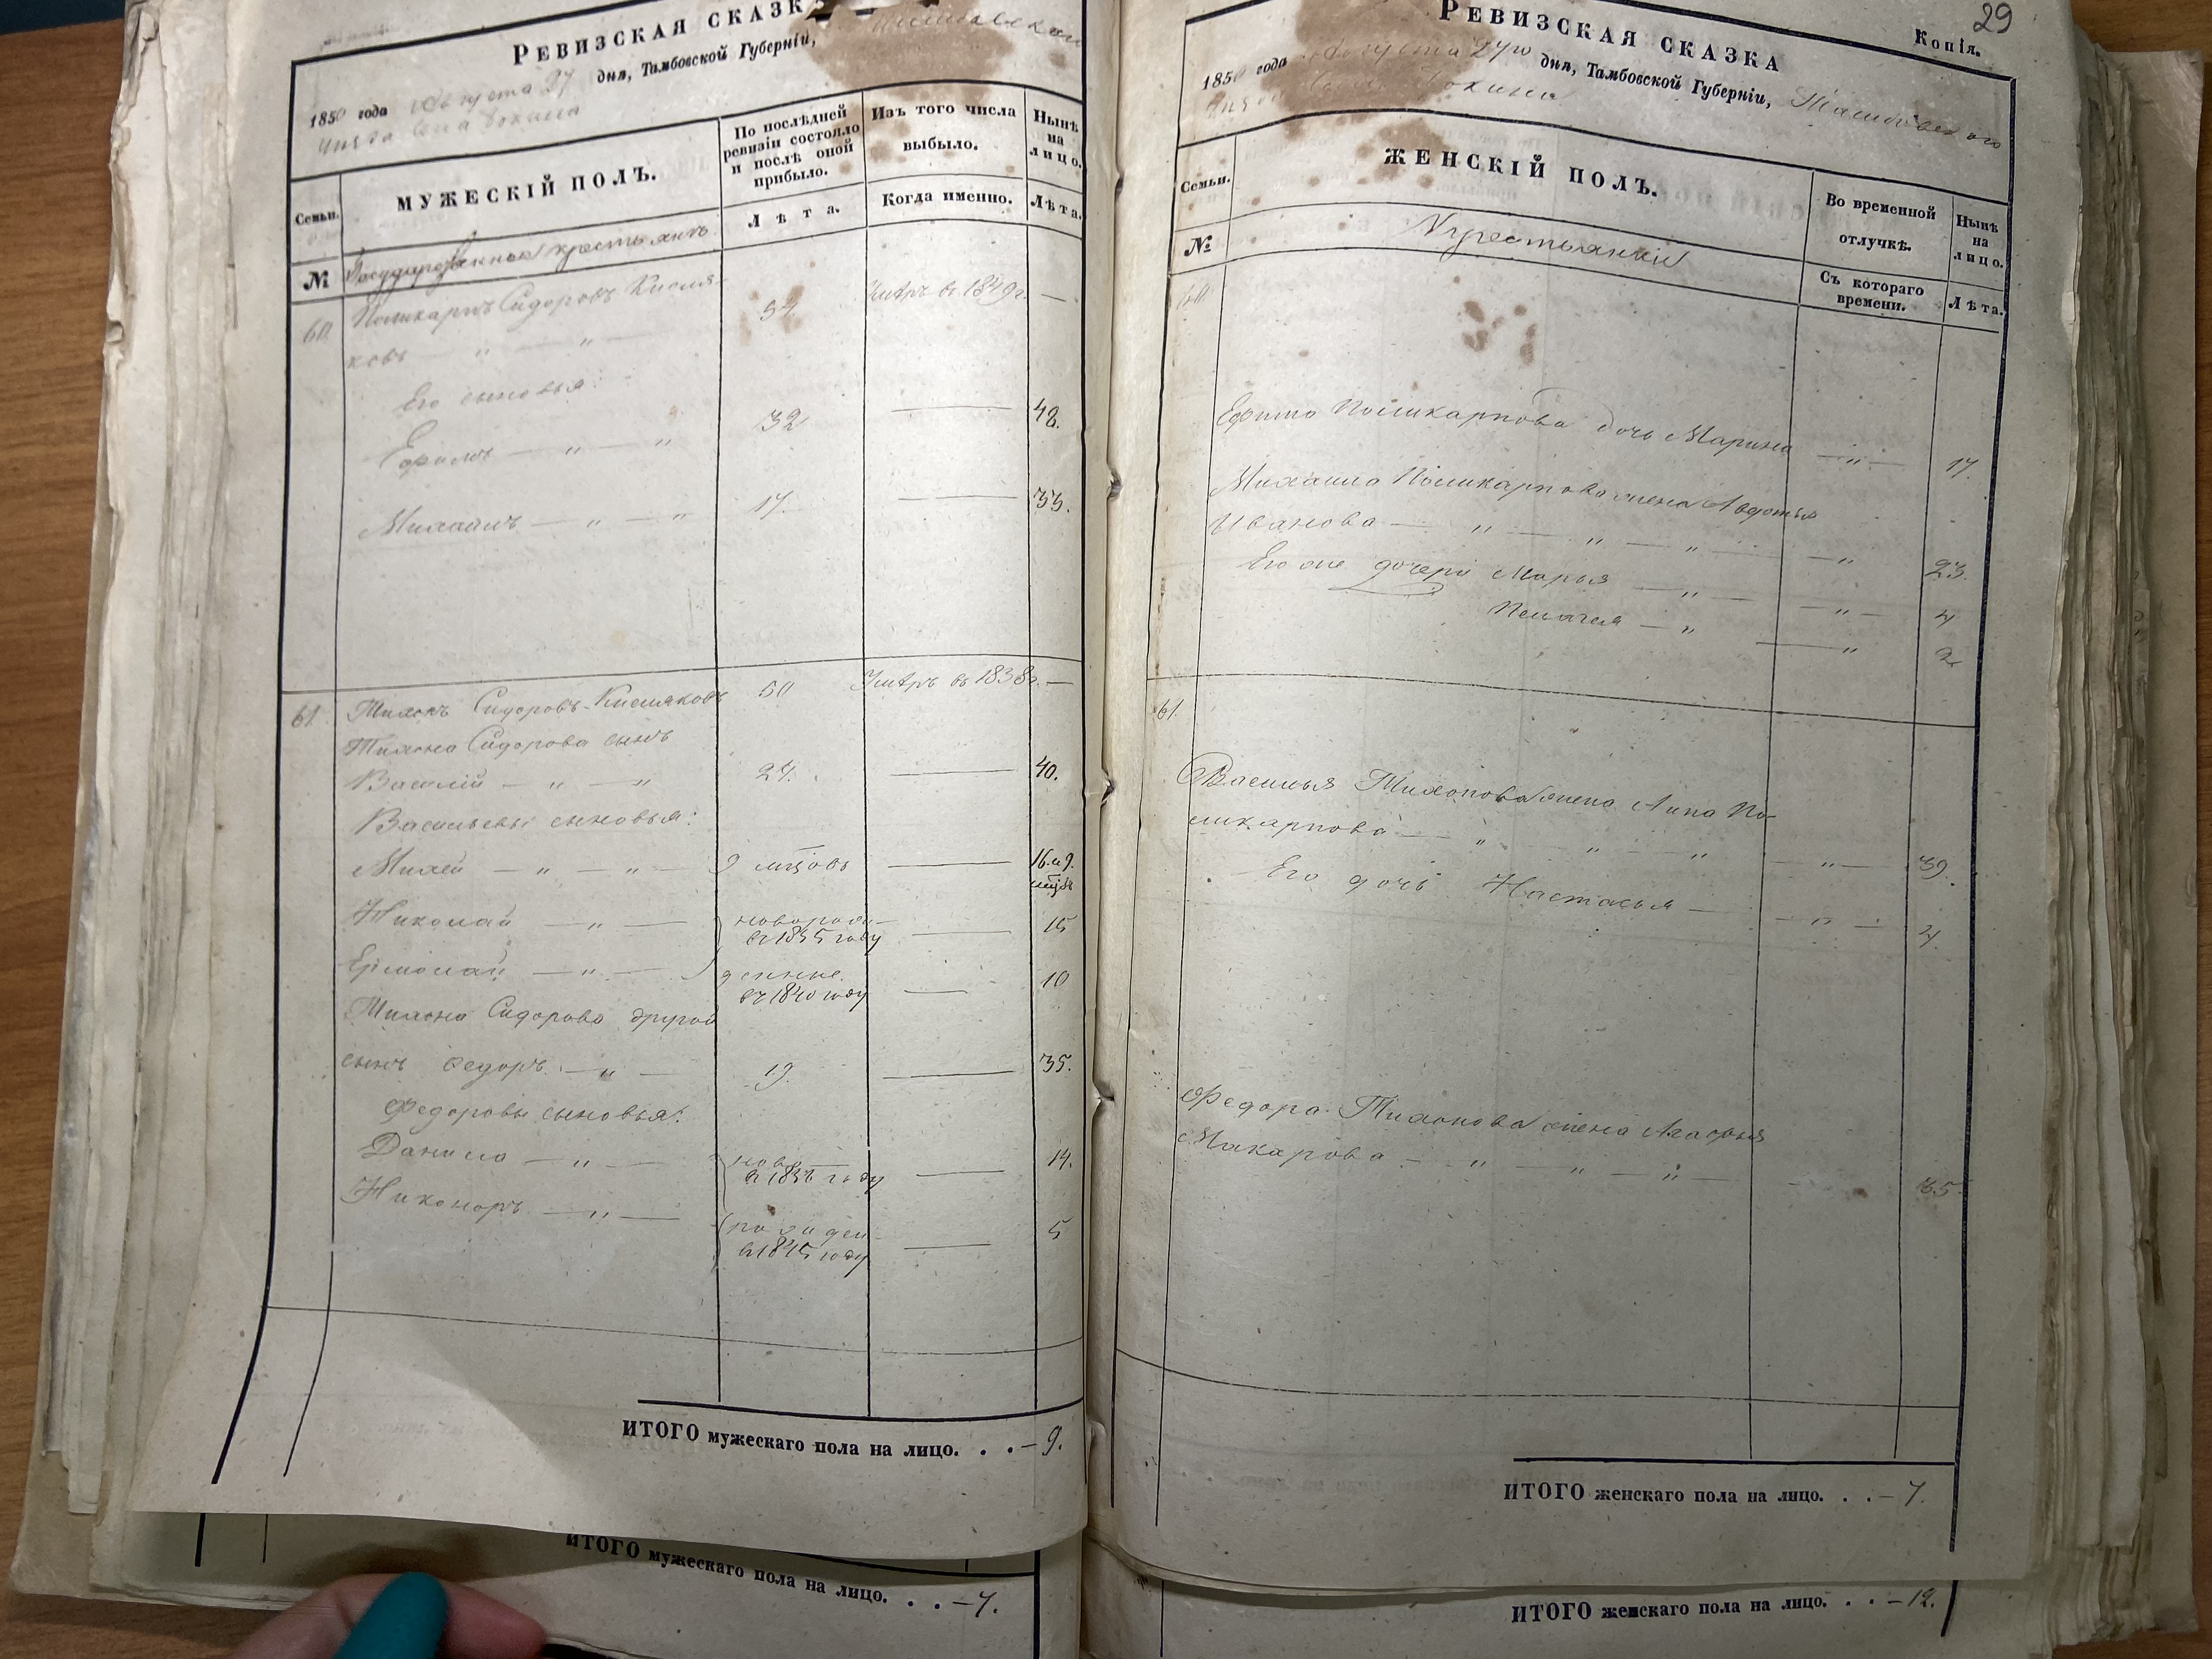 РЕВИЗСКАЯ СКАЗК
1850 года Августа 27 дня, Тамбовской Губерніи,
уѣзда села
Семьи.
МУЖЕСКІЙ ПОЛЪ.
По послѣдней ревизіи состояло и послѣ оной прибыло.
Изъ того числа выбыло.
Нынѣ на лицо.
Лѣта.
Когда именно.
Лѣта.
№
Государственные крестьяне
60. Поликарпъ Сидоровъ Кисля- 54 Умеръ въ 1849 г. —
ковъ — " — " —
Его сыновья:
Ефимъ — " — " 32 — 48.
Михаилъ — " — " 17. — 33.
61. Тихонъ Сидоровъ Кисляковъ 50 Умеръ въ 1838 г. —
Тихона Сидорова сынъ
Василій — " — " 24. — 40.
Васильевы сыновья:
Михей — " — " — 9 мцовъ — 16. и 9. мцвъ
Николай — " — новорож- въ 1835 году — 15
Ермолай — " — денные. въ 1840 году — 10
Тихона Сидорова другой
сынъ Федоръ — " — 19. — 35.
Федоровы сыновья:
Данила — " — ново въ 1836 году — 14.
Никоноръ — " — рожден- въ 1845 году — 5
ИТОГО мужескаго пола на лицо. . . — 9.
ИТОГО мужескаго пола на лицо. . . — 7.
29
Копія.
РЕВИЗСКАЯ СКАЗКА
1850 года Августа 27го дня, Тамбовской Губерніи, Тамбовскаго
Семьи.
ЖЕНСКІЙ ПОЛЪ.
Во временной отлучкѣ.
Нынѣ на лицо.
№
Крестьянки
Съ котораго времени.
Лѣта.
60.
Ефима Поликарпова дочь Марина — " — 17.
Михаила Поликарпова жена Авдотья
Иванова — " — " — " — " 23.
Его же дочери Марья — " — " — 4
Пелагея — " — " 2
61.
Василья Тихонова жена Анна По-
ликарпова — " — " — " — " — 39.
Его дочь Настасья — " — 4.
Федора Тихонова жена Агафья
Макарова — " — " — " — 35
ИТОГО женскаго пола на лицо. . . — 7.
ИТОГО женскаго пола на лицо. . . — 12.